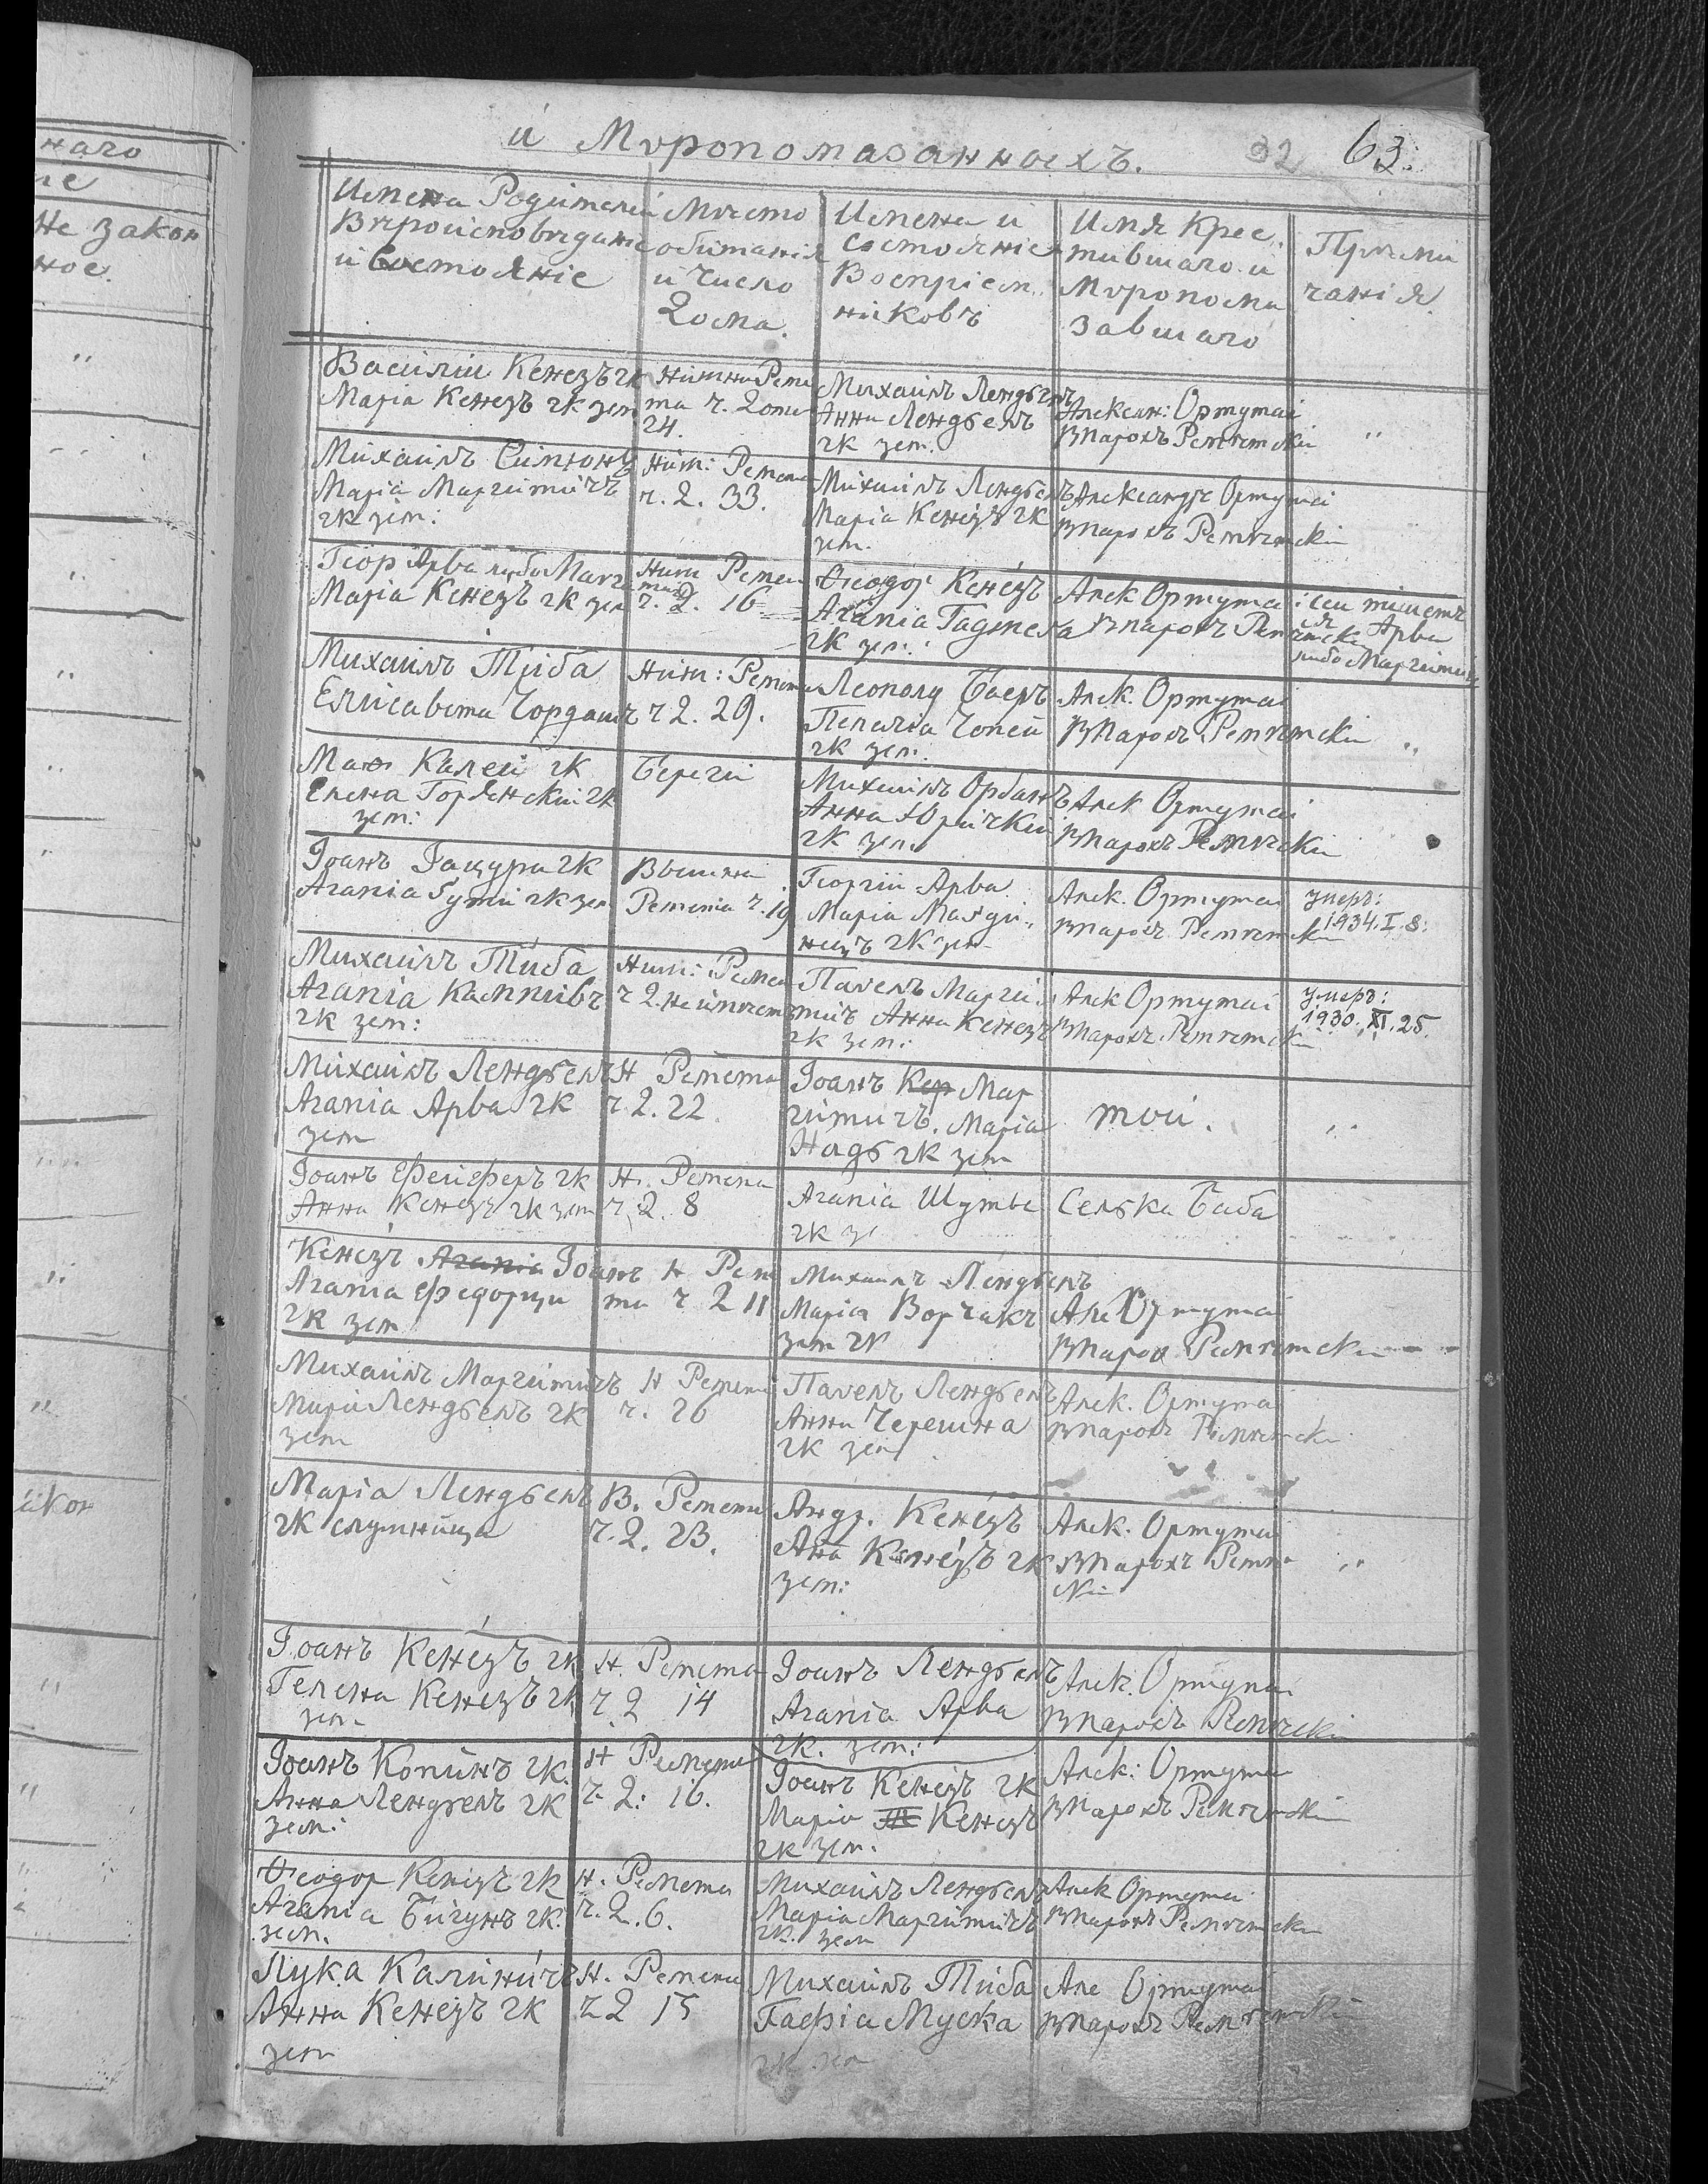 наго
Не закон
ное.
и Мѵропомазанныхъ.
32 63.
Имена Родителей
Вѣроисповѣданіе
и Состояніе
Мѣсто
обитанія
и Число
Дома.
Имена и
Состояніе
Воспріем
никовъ
Имя Крес
тившаго и
Мѵропома
завшаго
Примѣ
чанія.
Василій Кенезъ гк
Марія Кенезъ гк зем
Нижна Реме
та ч. Дома
24.
Михаилъ Лендьелъ
Анна Лендьелъ
гк зем.
Алексан: Ортутай
Парохъ Реметски
Михаилъ Симіонъ
Марія Маргитичъ
гк зем:
Ниж: Ремета
ч. Д. 33.
Михаилъ Лендьелъ
Марія Кенезъ гк
зем.
Александръ Ортутай
Парохъ Реметски
Геор Арва либо Марг
Марія Кенезъ гк зем
Ниж Ремет
ч. Д. 16
Ѳеодор Кенезъ
Агапія Гадмека
гк зем:
Алек Ортутай
Парохъ Реметски
сеи пишетъ
ся Арва
либо Маргитич
Михаилъ Тиба
Елисавета Чордашъ
Ниж: Ремета
ч Д. 29.
Леополд Баеръ
Пелагія Чопей
гк зем:
Алек. Ортутай
Парохъ Реметски
Маѳ Калей гк
Елена Горянский гк
зем:
Береги
Михаилъ Орбанъ
Анна Юричкаи
гк зем.
Алек Ортутай
Парохъ Реметски
Іоанъ Гацура гк
Агапія Гутій гк зем
Вышня
Ремета ч. 19
Георгій Арва
Марія Мавди
нецъ гк зем
Алек. Ортутай
Парохъ Реметски
умеръ:
1934. I. 8.
Михаилъ Тиба
Агапія Камповъ
гк зем:
Ниж: Ремет
ч Д. не имеет
Павелъ Марги
тичъ Анна Кенезъ
гк зем:
Алек Ортутай
Парохъ Реметски
умеръ:
1930. XI. 25.
Михаилъ Лендьелъ
Агапія Арва гк
зем
Н Ремета
ч. Д. 22
Іоанъ Кер Мар
гитичъ. Марія
Надь гк зем
той.
Іоанъ Фейферъ гк
Анна Кенезъ гк зем
Н. Ремета
ч. Д. 8
Агапія Шутье
гк зе
Селька Баба
Кенезъ Агапія Іоанъ
Агапія Федорци
гк зем
Н Реме
та ч Д 11
Михаилъ Лендьелъ
Марія Ворчакъ
зем гк
Але Ортутай
Парох Реметски
Михаилъ Маргитичъ
Марія Лендьелъ гк
зем
Н Ремета
ч. 26
Павелъ Лендьелъ
Анна Черешня
гк зем
Алек. Ортутай
Парохъ Реметски
Марія Лендьелъ
гк служница
В. Ремета
ч. Д. 23.
Андр. Кенезъ
Ана Кенезъ гк
зем:
Алек. Ортутай
Парохъ Реме
ски
Іоанъ Кенезъ гк
Гелена Кенезъ гк
зем
Н. Ремета
ч. Д 14
Іоанъ Лендьелъ
Агапія Арва
гк. зем:
Алек. Ортутай
Парохъ Реметски
Іоанъ Копинъ гк.
Анна Лендьелъ гк
зем.
Н Ремета
ч. Д. 16.
Іоанъ Кенезъ гк
Марія Кенезъ
гк зем.
Алек: Ортутай
Парохъ Реметски
Ѳеодор Кенезъ гк
Агапіа Бигунъ гк.
зем.
Н. Ремета
ч. Д. 6.
Михаилъ Лендьелъ
Марія Маргитичъ
гк. зем
Алек Ортутай
Парохъ Реметски
Лука Калиничъ
Анна Кенезъ гк
зем
Н. Ремета
ч Д 15
Михаилъ Тиба
Гафіа Муска
гк зем
Але Ортутай
Парохъ Реметски